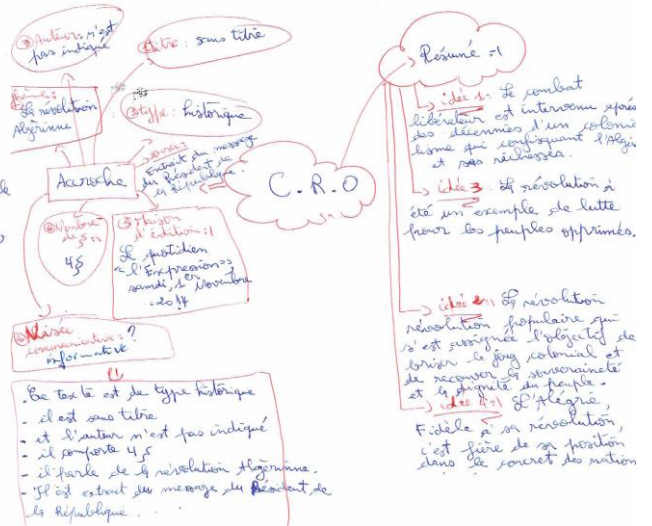 ② Auteur: n'est
pas indiqué
① titre : sans titre
thème:
La révolution
Algérinne
③ type : historique
source:
Extrait du message
du Président de
la République.
Accroche
④ Nombre
de § :
4§
⑤ Maison
d'édition :
Le quotidien
"l'Expression"
samedi, 1er Novembre
2014
Visée
communicative : ?
informative
. Ce texte est de type historique
- il est sans titre
- et l'auteur n'est pas indiqué
- il comporte 4§
- il parle de la révolution Algérinne.
- Il est extrait du message du Président de
la République.
C.R.O
Résumé :
idée 1: Le combat
libérateur est intervenu après
des décennies d'un colonia
lisme qui confisquant l'Algé
et ses richesses.
idée 3. La révolution à
été un exemple de lutte
pour les peuples opprimés.
idée 2: La révolution
révolution populaire qui
s'est assignée l'objectif de
briser le joug colonial et
de recouvrer la souveraineté
et la dignité du peuple.
idée 4: L'Algérie,
Fidèle à sa révolution,
c'est fière de sa position
dans le concret des nation